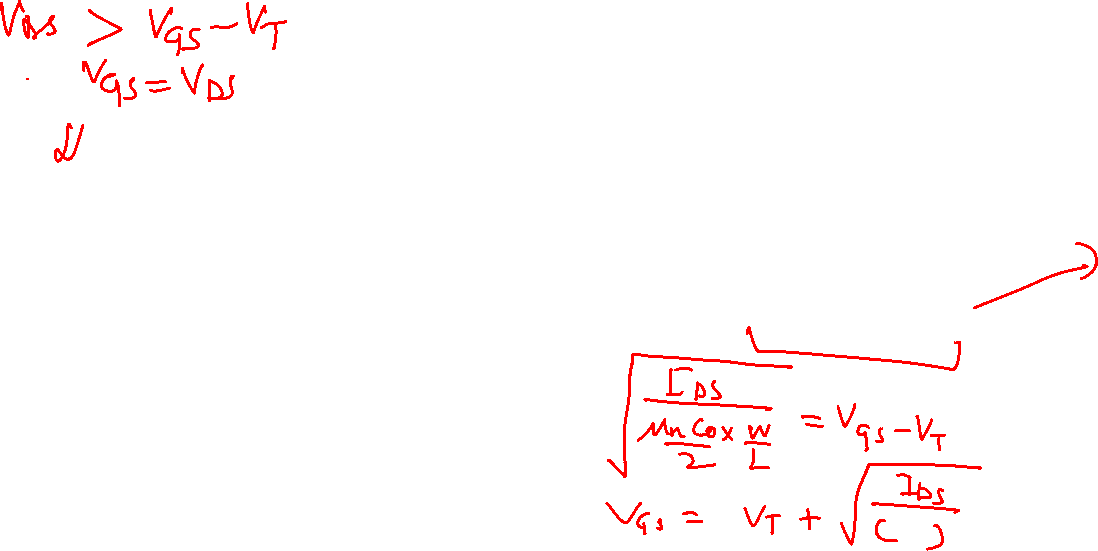 V_DS > V_GS - V_T
V_GS = V_DS
⇓
√(I_DS / ((μn Cox / 2) (W / L))) = V_GS - V_T
V_GS = V_T + √(I_DS / ( ))